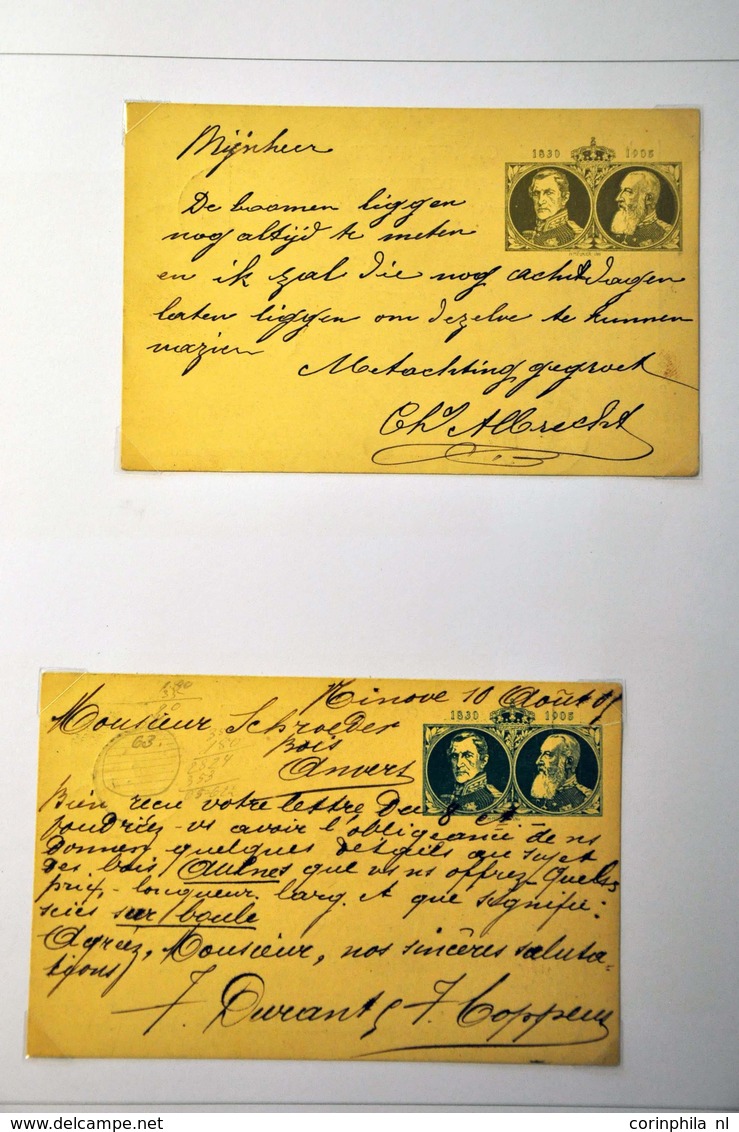 Mijnheer
1830 1905
De boomen liggen
nog altijd te meten
en ik zal die nog acht dagen
laten liggen om dezelve te kunnen
nazien
Met achting gegroet
Ch Albrecht
Ninove 10 Août
Monsieur Schroeder
Bois
Anvers
1830 1905
63.
Bien reçu votre lettre Du 8 ct
voudriez-vs avoir l'obligeance de ns
Donner quelques détails au sujet
Des bois aulnes que vs ns offrez. Quels
prix, longueur. larg. et que signifie:
sciés sur boule
Agréez, Monsieur, nos sincères saluta-
tions
F. Durant & F. Coppens
www.delcampe.net
corinphila nl